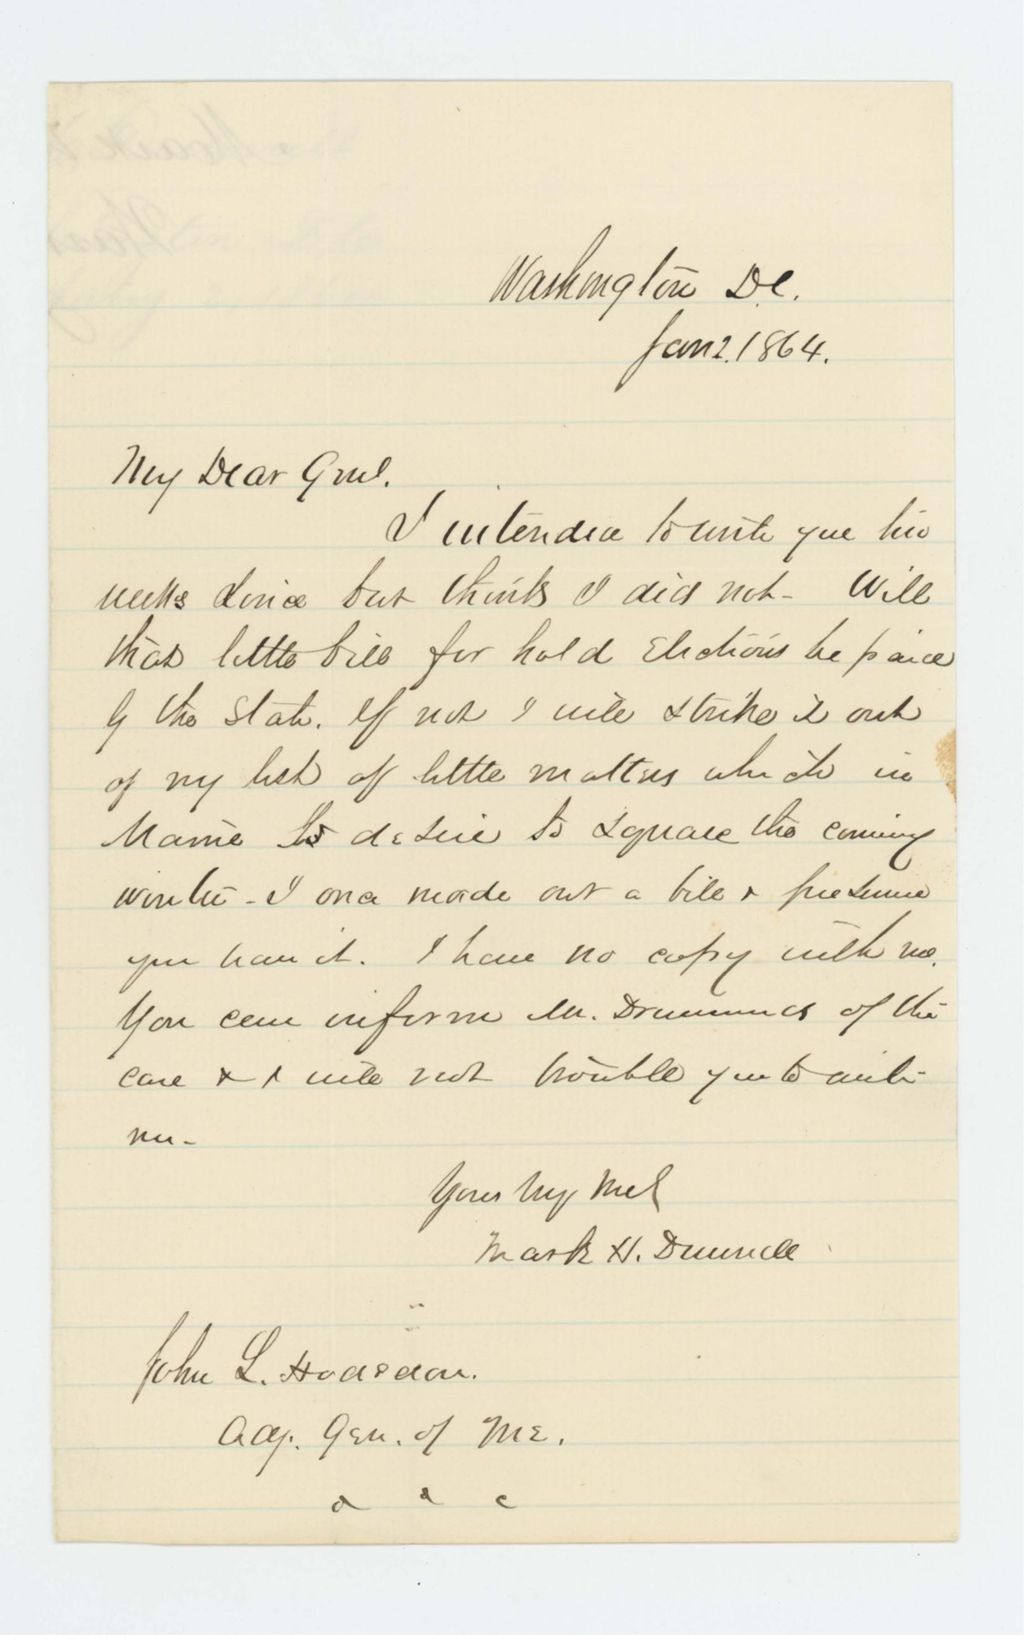 Washington D.C.
Jan 2. 1864.
My Dear Genl.
I intended to write you two
weeks since but think I did not - Will
that little bill for hold Elections be paid
by the State. If not I will strike it out
of my list of little matters which in
Maine I desire to square the coming
winter - I once made out a bill & presume
you have it. I have no copy with me.
You can inform Mr. Drummond of the
case & I will not trouble you to write
me -
Yours Very Truly
Mark H. Dunnell
John L. Hodsdon.
Adj. Gen. of Me.